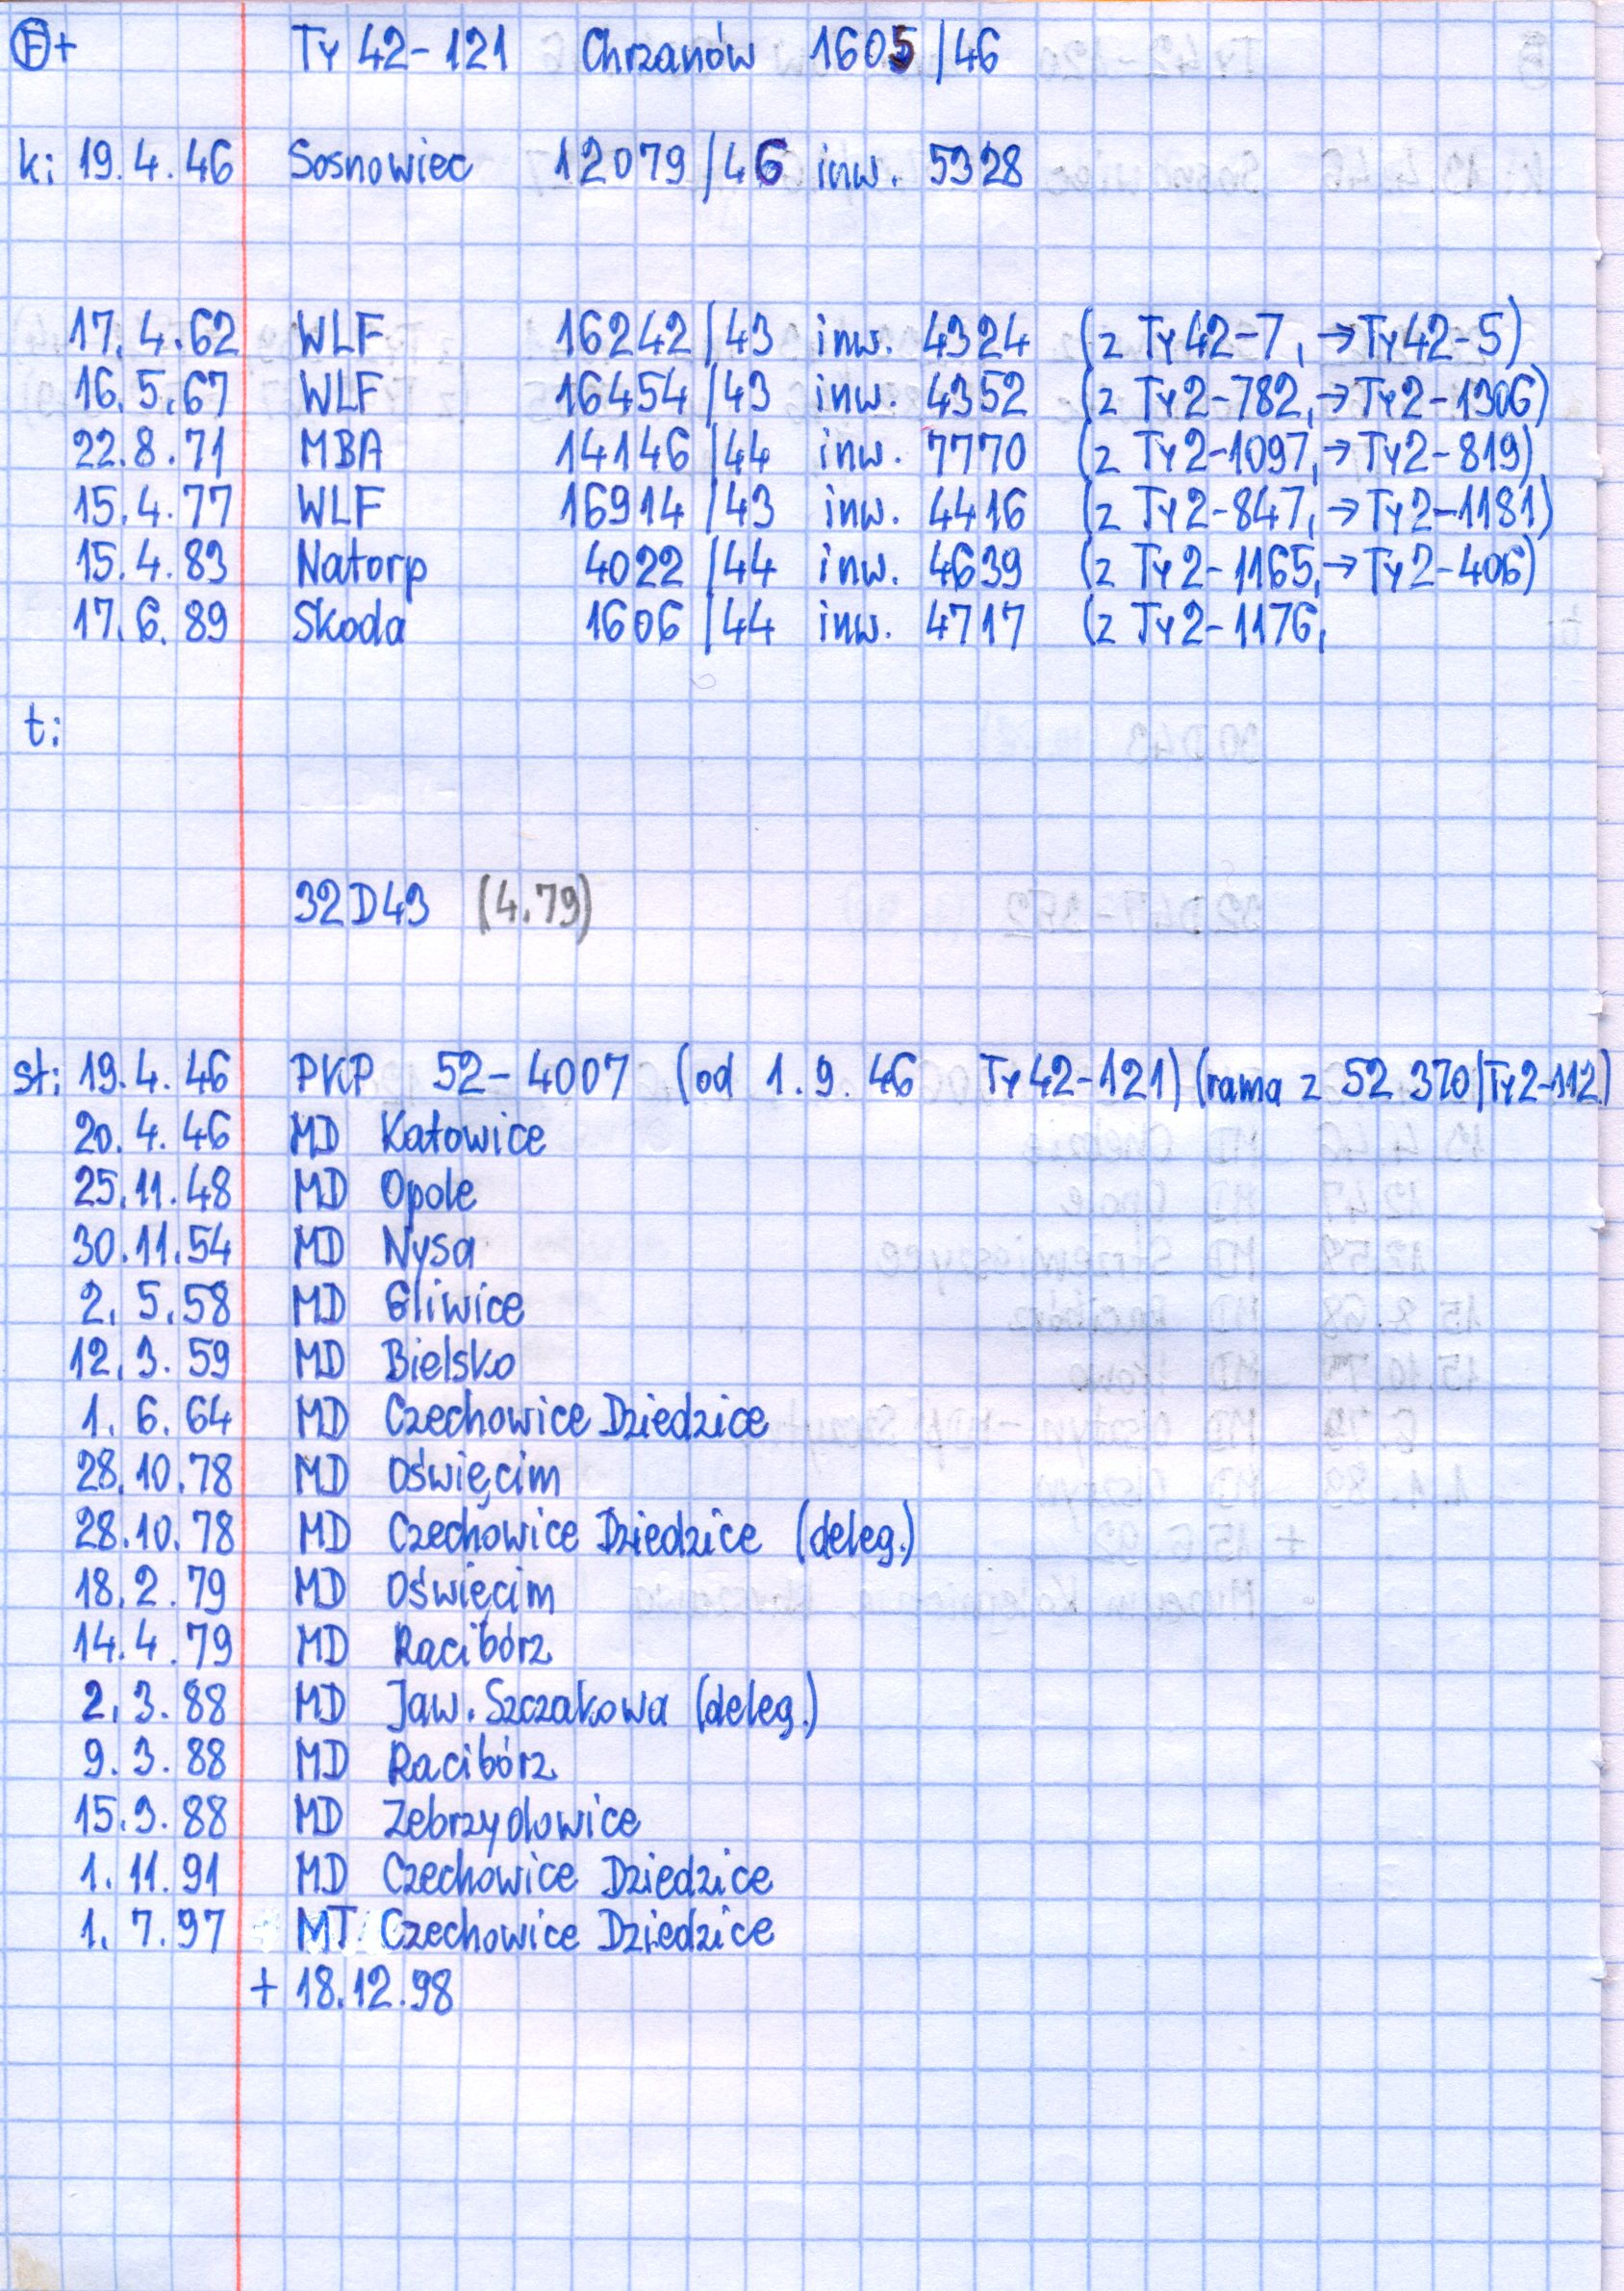 Ⓕ+ Ty 42-121 Chrzanów 1605/46
k: 19.4.46 Sosnowiec 12079/46 inw. 5328
17.4.62 WLF 16242/43 inw. 4324 (z Ty42-7, →Ty42-5)
16.5.67 WLF 16454/43 inw. 4352 (z Ty2-782, →Ty2-1306)
22.8.71 MBA 14146/44 inw. 7770 (z Ty2-1097, →Ty2-819)
15.4.77 WLF 16914/43 inw. 4416 (z Ty2-847, →Ty2-1181)
15.4.83 Natorp 4022/44 inw. 4639 (z Ty2-1165, →Ty2-406)
17.6.89 Skoda 1606/44 inw. 4717 (z Ty2-1176,
t:
32D43 (4.79)
st: 19.4.46 PKP 52-4007 (od 1.9.46 Ty42-121) (rama z 52 370/Ty2-112)
20.4.46 MD Katowice
25.11.48 MD Opole
30.11.54 MD Nysa
2.5.58 MD Gliwice
12.3.59 MD Bielsko
1.6.64 MD Czechowice Dziedzice
28.10.78 MD Oświęcim
28.10.78 MD Czechowice Dziedzice (deleg.)
18.2.79 MD Oświęcim
14.4.79 MD Racibórz
2.3.88 MD Jaw. Szczakowa (deleg.)
9.3.88 MD Racibórz
15.3.88 MD Zebrzydowice
1.11.91 MD Czechowice Dziedzice
1.7.97 MT Czechowice Dziedzice
+ 18.12.98